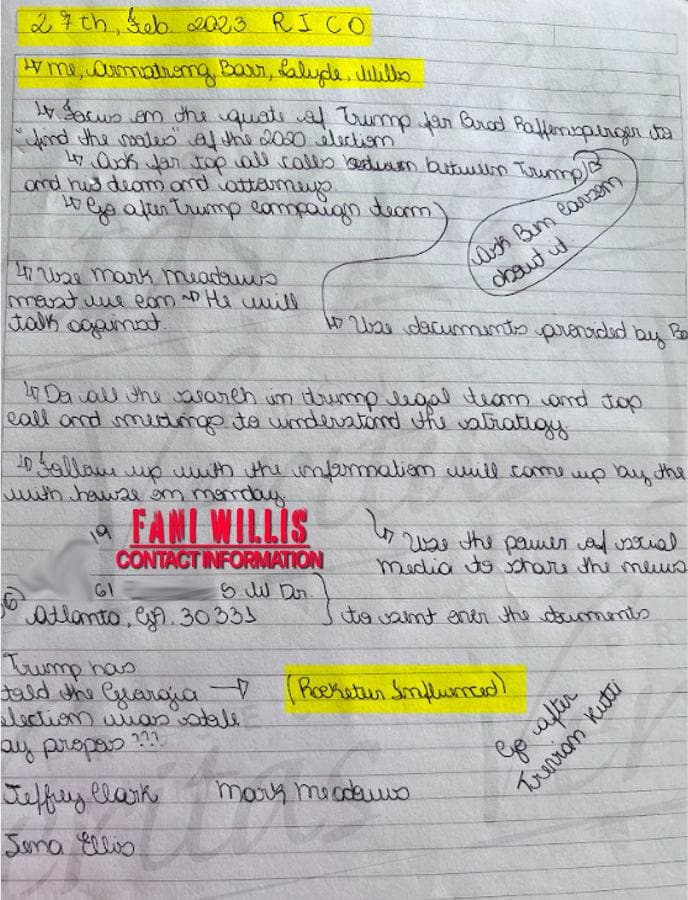 27th, Feb. 2023 RICO
↳ me, Armstrong, Barr, Calyde, Wills
↳ Focus on the quote of Trump for Brad Raffensperger to
"find the votes" of the 2020 election
↳ Ask for top all calls between Trump
and his team and attorneys
↳ Go after Trump campaign team
Ask Ben Carson
about it
↳ Use Mark Meadows
most we can → He will
talk against.
↳ Use documents provided by
↳ Do all the search in trump legal team and top
call and meetings to understand the stratigy
↳ Follow up with the information will come up by the
with house on monday
19
FANI WILLIS
CONTACT INFORMATION
↳ Use the power of social
media to share the news
61 S W Dr.
Atlanta, GA. 30331
to sent over the documents
Trump has
told the Georgia →
election was stole
ay propos???
(Racketeer Influenced)
Go after
Trevian Kutti
Jeffrey Clark Mark Meadows
Jena Ellis